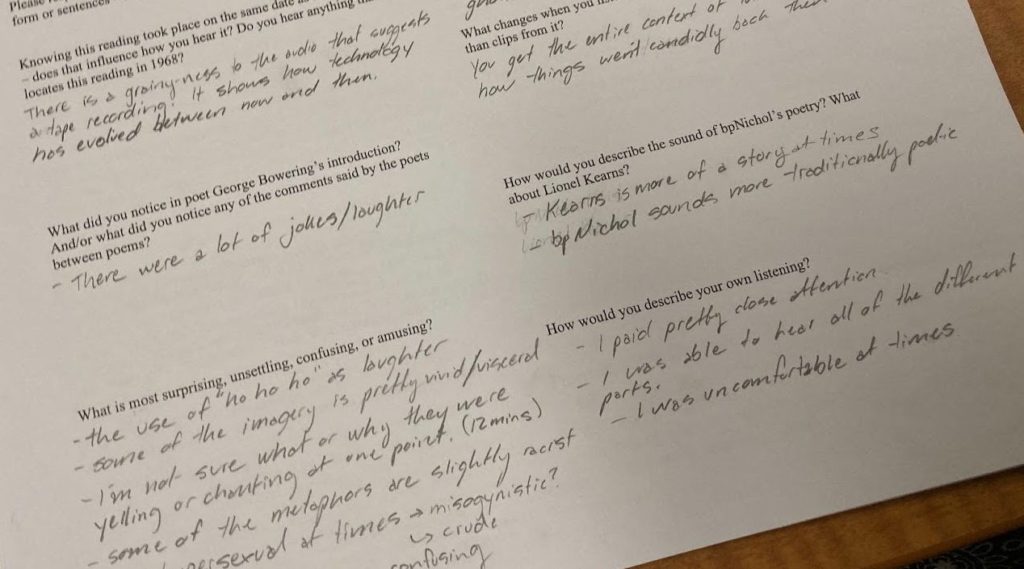 Please
form or sentences
Knowing this reading took place on the same date as
– does that influence how you hear it? Do you hear anything
locates this reading in 1968?
There is a grainy-ness to the audio that suggests
a tape recording. It shows how technology
has evolved between now and then.
What did you notice in poet George Bowering's introduction?
And/or what did you notice any of the comments said by the poets
between poems?
- There were a lot of jokes/laughter
What is most surprising, unsettling, confusing, or amusing?
- the use of "ho ho ho" as laughter
- some of the imagery is pretty vivid/visceral
- I'm not sure what or why they were
yelling or chanting at one point. (12 mins)
- some of the metaphors are slightly racist
at times → misogynistic?
↳ crude
confusing
What changes when you
than clips from it?
You get the entire context of
how things went/candidly back then
How would you describe the sound of bpNichol's poetry? What
about Lionel Kearns?
- Kearns is more of a story at times
- bpNichol sounds more traditionally poetic
How would you describe your own listening?
- I paid pretty close attention
- I was able to hear all of the different
parts.
- I was uncomfortable at times